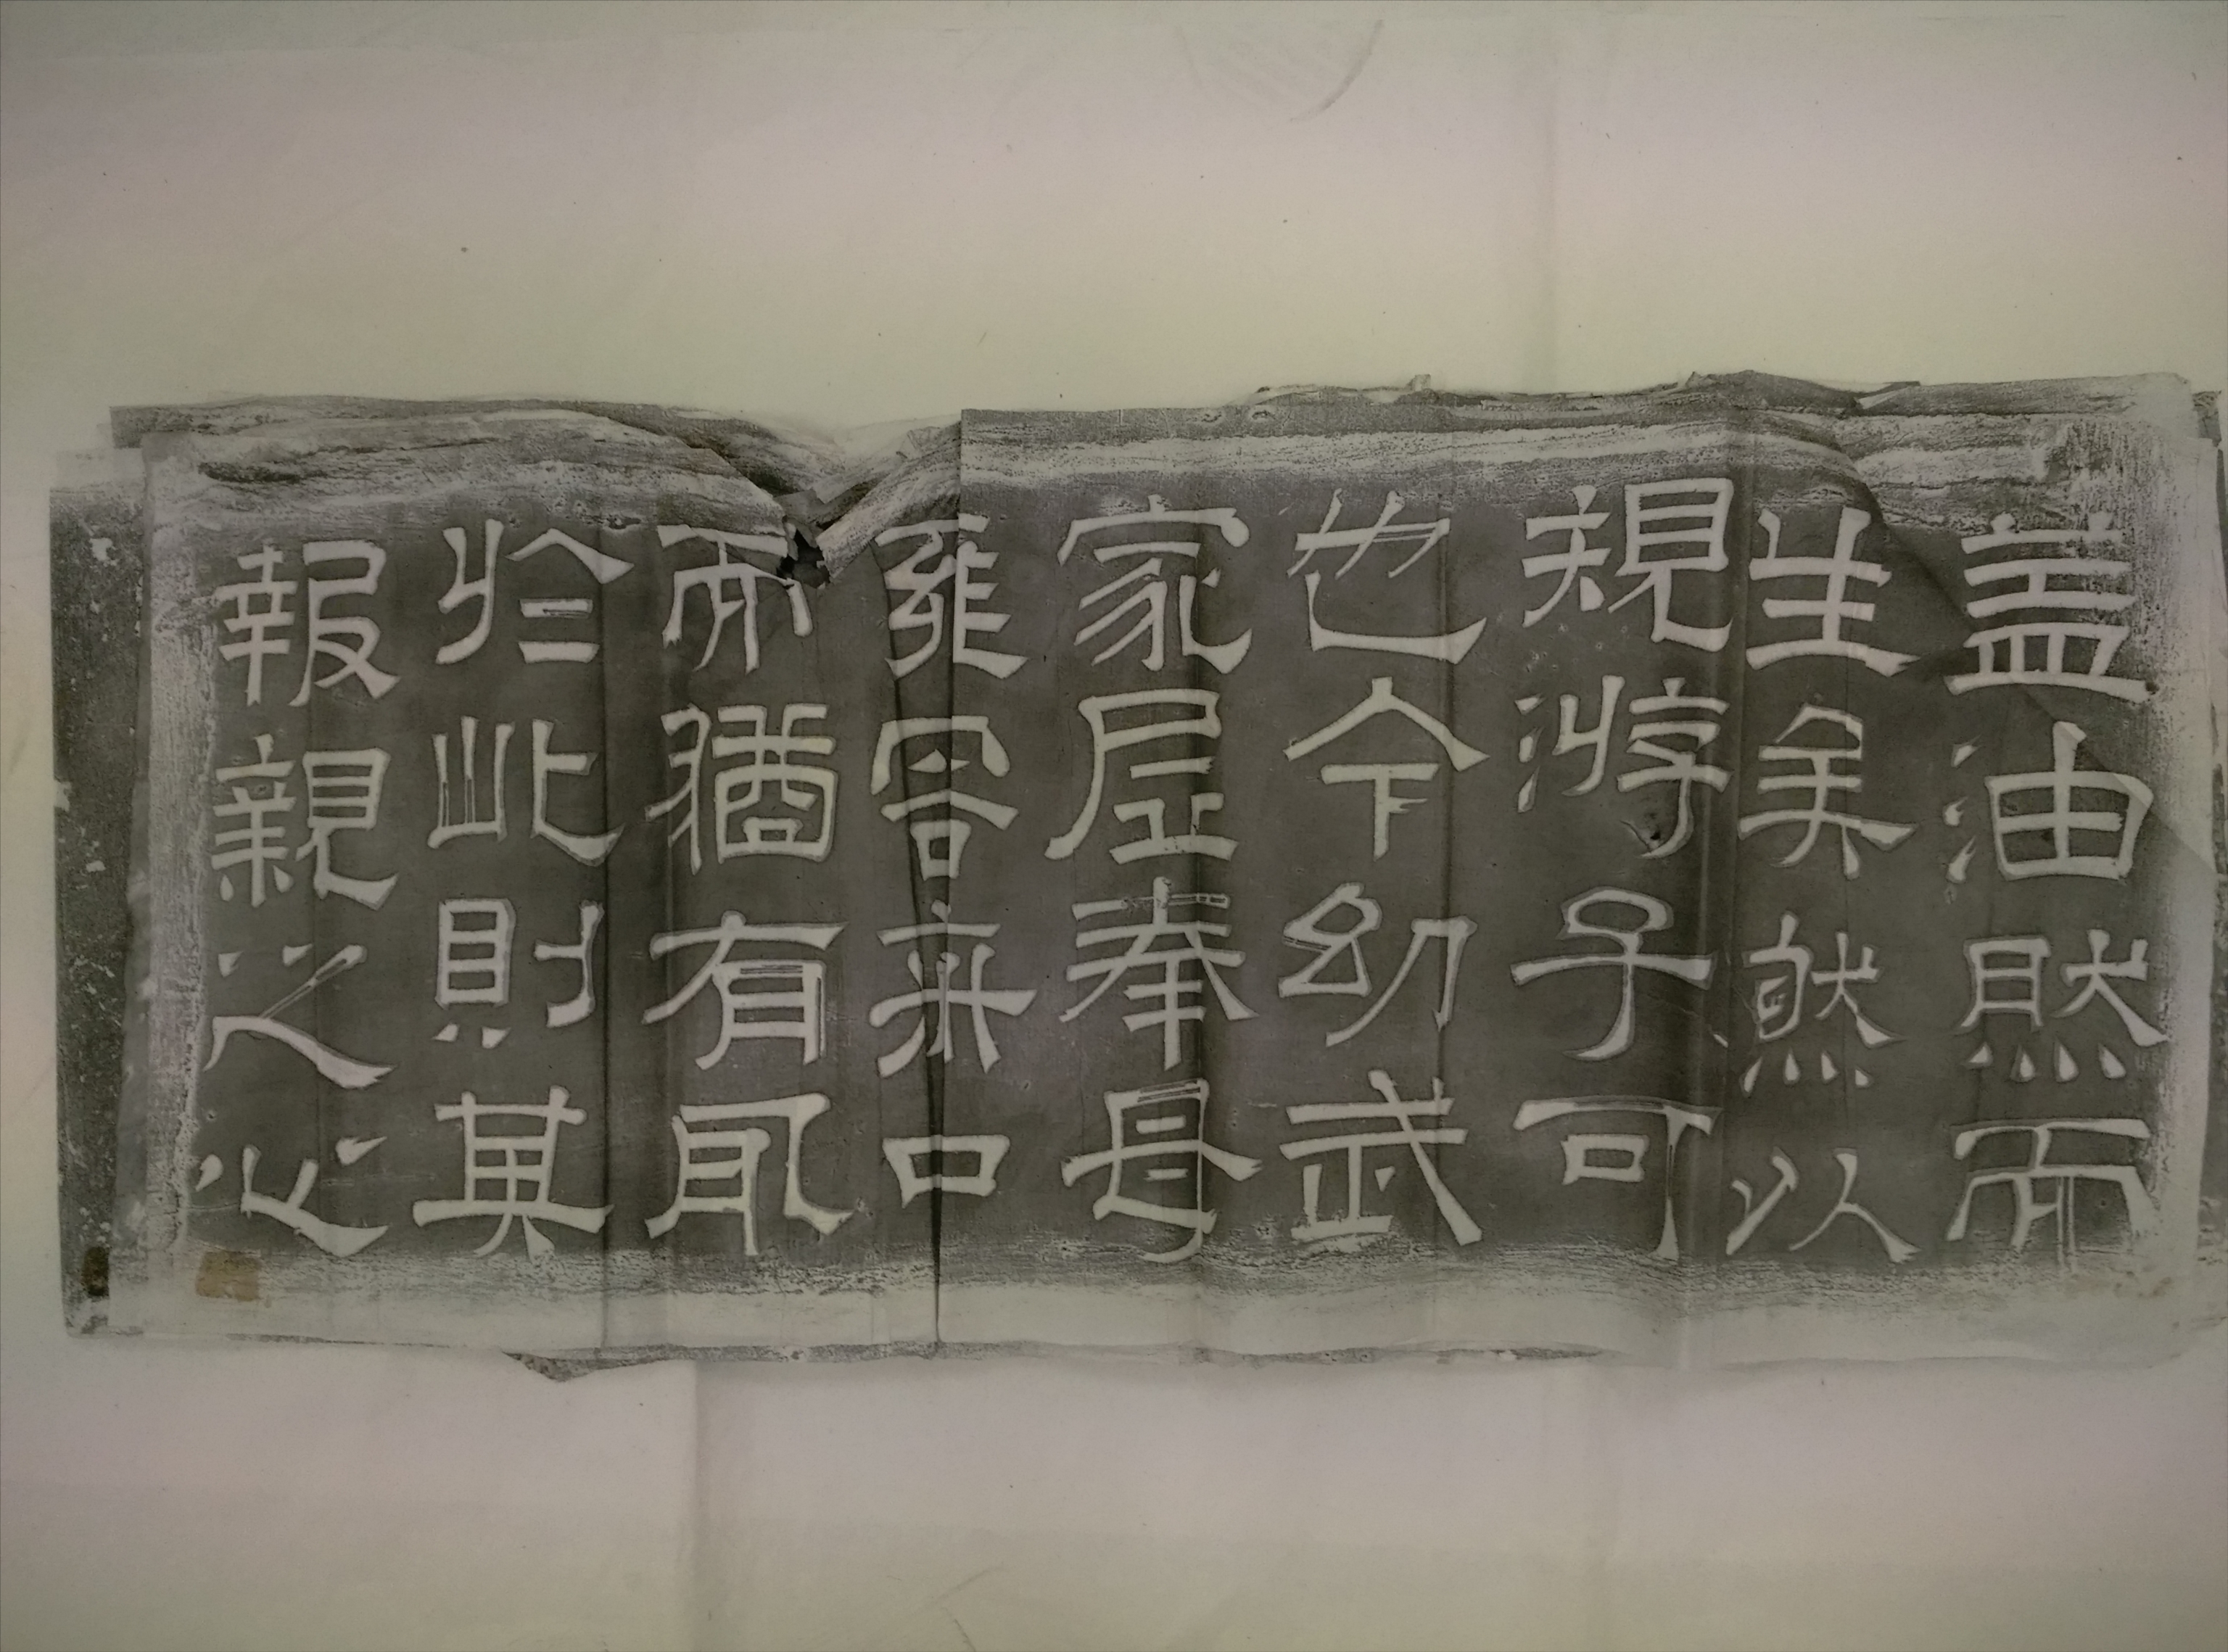 盖油然而
生矣然以
規游子可
也今幼武
家居奉母
雍容来口
而猶有
於此則其
報親之心